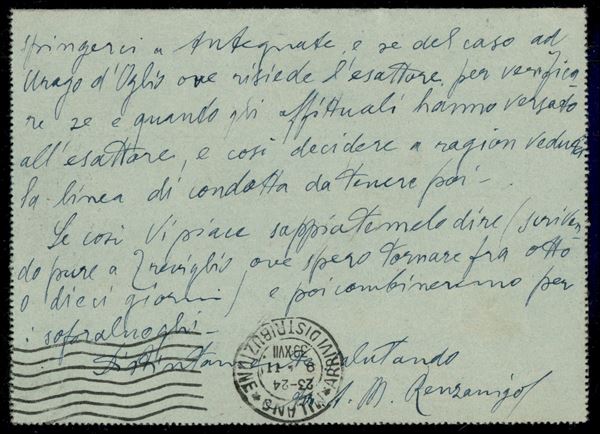 spingerci a Antegnate, e se del caso ad
Urago d'Oglio ove risiede l'esattore per verifica
re se e quando gli affittuali hanno versato
all'esattore, e così decidere a ragion veduta
la linea di condotta da tenere poi -
Se così Vi piace sappiatemelo dire (scriven
do pure a Treviglio, ove spero tornare fra otto
o dieci giorni) e poi combineremo per
i sopraluoghi -
Distintamente salutando
M. Renzanigo
MILANO ARRIVI DISTRIBUZIONE
23-24
9 11
39 XVII